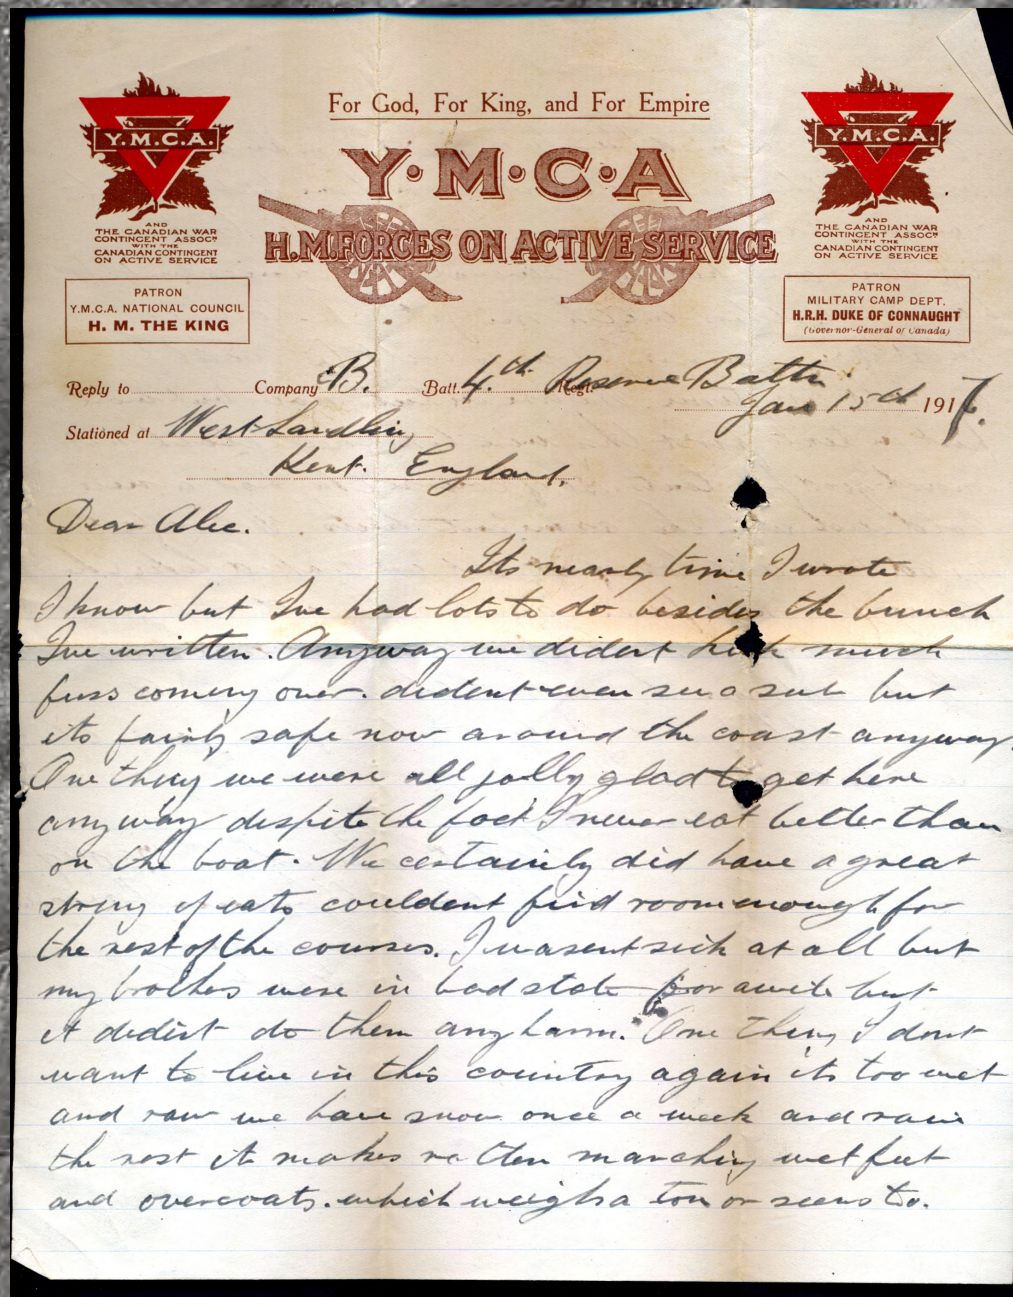 For God, For King, and For Empire
Y.M.C.A.
AND
THE CANADIAN WAR
CONTINGENT ASSOCN
WITH THE
CANADIAN CONTINGENT
ON ACTIVE SERVICE
PATRON
Y.M.C.A. NATIONAL COUNCIL
H. M. THE KING
Y·M·C·A
H.M.FORCES ON ACTIVE SERVICE
Y.M.C.A.
AND
THE CANADIAN WAR
CONTINGENT ASSOCN
WITH THE
CANADIAN CONTINGENT
ON ACTIVE SERVICE
PATRON
MILITARY CAMP DEPT.
H.R.H. DUKE OF CONNAUGHT
(Governor-General of Canada)
Reply to Company B. Batt. 4.th Reserve Battn Regt.
Jan 15th 1917.
Stationed at West Sandling
Kent. England.
Dear Alec.
Its nearly time I wrote
I know but Ive had lots to do besides the bunch
Ive written. Anyway we dident much
fuss coming over. dident even see a sub but
its fairly safe now around the coast anyway.
One thing we were all jolly glad to get here
anyway despite the fact I never eat better than
on the boat. We certainly did have a great
string of eats couldent find room enough for
the rest of the courses. I wasent sick at all but
my brothers were in bad state for awile but
it dident do them any harm. One thing I dont
want to live in this country again its too wet
and raw we have snow once a week and rain
the rest it makes rotten marching wet feet
and overcoats. which weighs a ton or seems to.